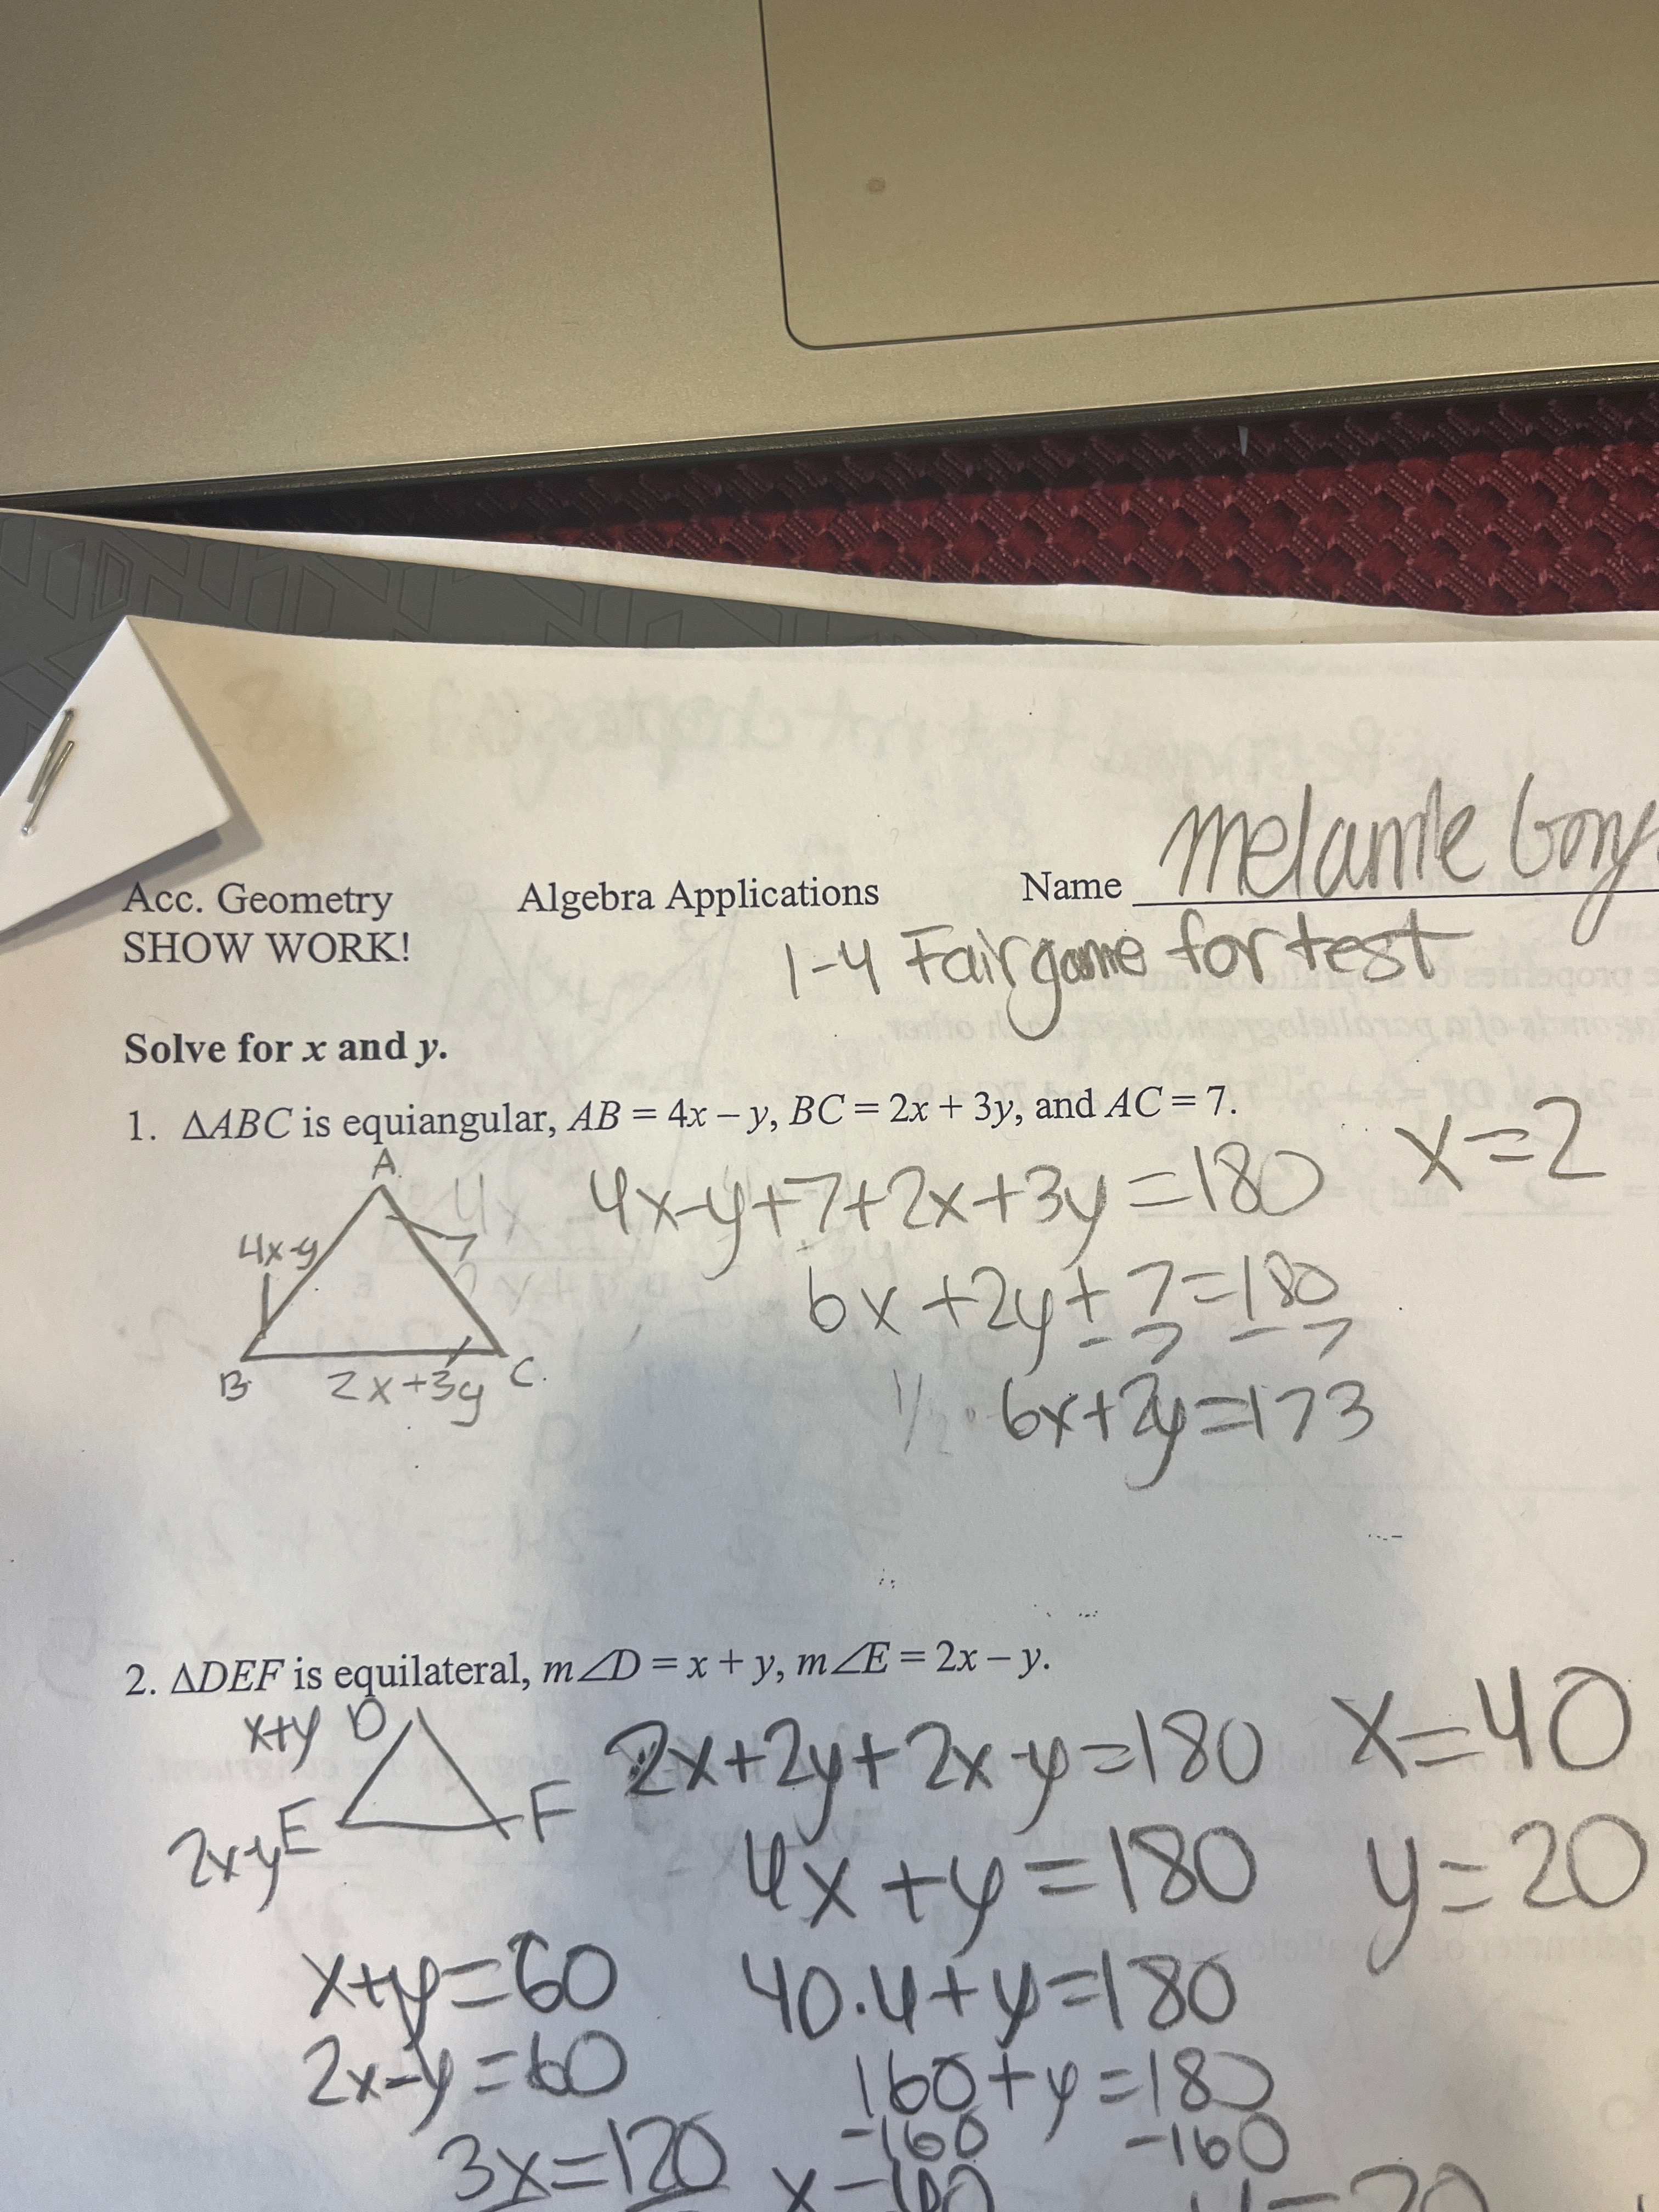 Acc. Geometry Algebra Applications Name Melanie
SHOW WORK!
1-4 Fair game for test
Solve for x and y.
1. ΔABC is equiangular, AB = 4x – y, BC = 2x + 3y, and AC = 7.
x=2
A
4x-y
7
B
2x+3y
C.
4x-y+7+2x+3y=180
6x+2y+7=180
-7 -7
6x+2y=173
2. ΔDEF is equilateral, m∠D = x + y, m∠E = 2x – y.
x+y D
2x-y E
F
2x+2y+2x-y=180
4x+y=180
40.4+y=180
160+y=180
-160 -160
x=40
y=20
x+y=60
2x-y=60
3x=120